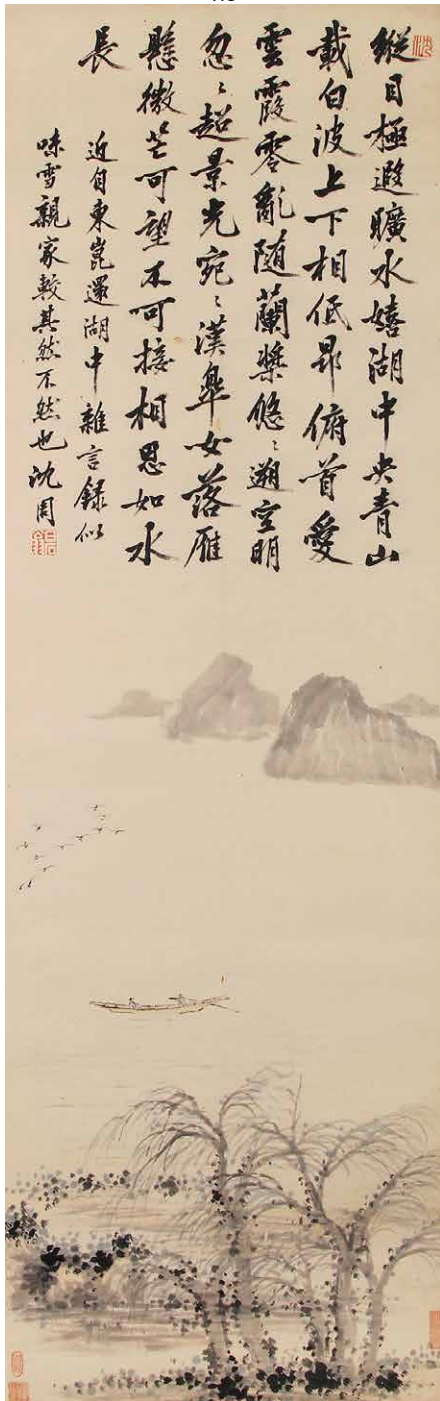 縱目極遐曠水嬉湖中央青山
載白波上下相低昂俯首愛
雲霞零亂随蘭槳悠〻遡空明
忽〻超景光宛〻漢皋女落雁
懸微茫可望不可接相思如水
長
近自東崑還湖中雜言録似
味雪親家較其然不然也沈周